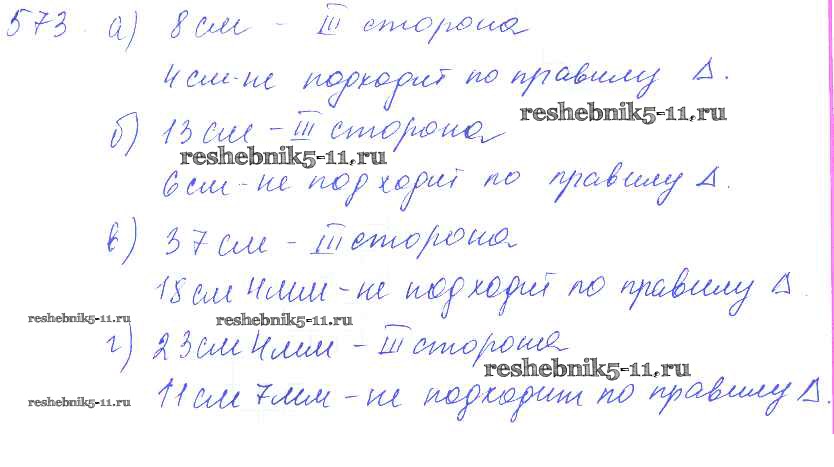 573. а) 8 см - III сторона
4 см - не подходит по правилу Δ.
reshebnik5-11.ru
б) 13 см - III сторона
reshebnik5-11.ru
6 см - не подходит по правилу Δ.
в) 37 см - III сторона
18 см 4 мм - не подходит по правилу Δ.
reshebnik5-11.ru reshebnik5-11.ru
г) 23 см 4 мм - III сторона
reshebnik5-11.ru
reshebnik5-11.ru 11 см 7 мм - не подходит по правилу Δ.